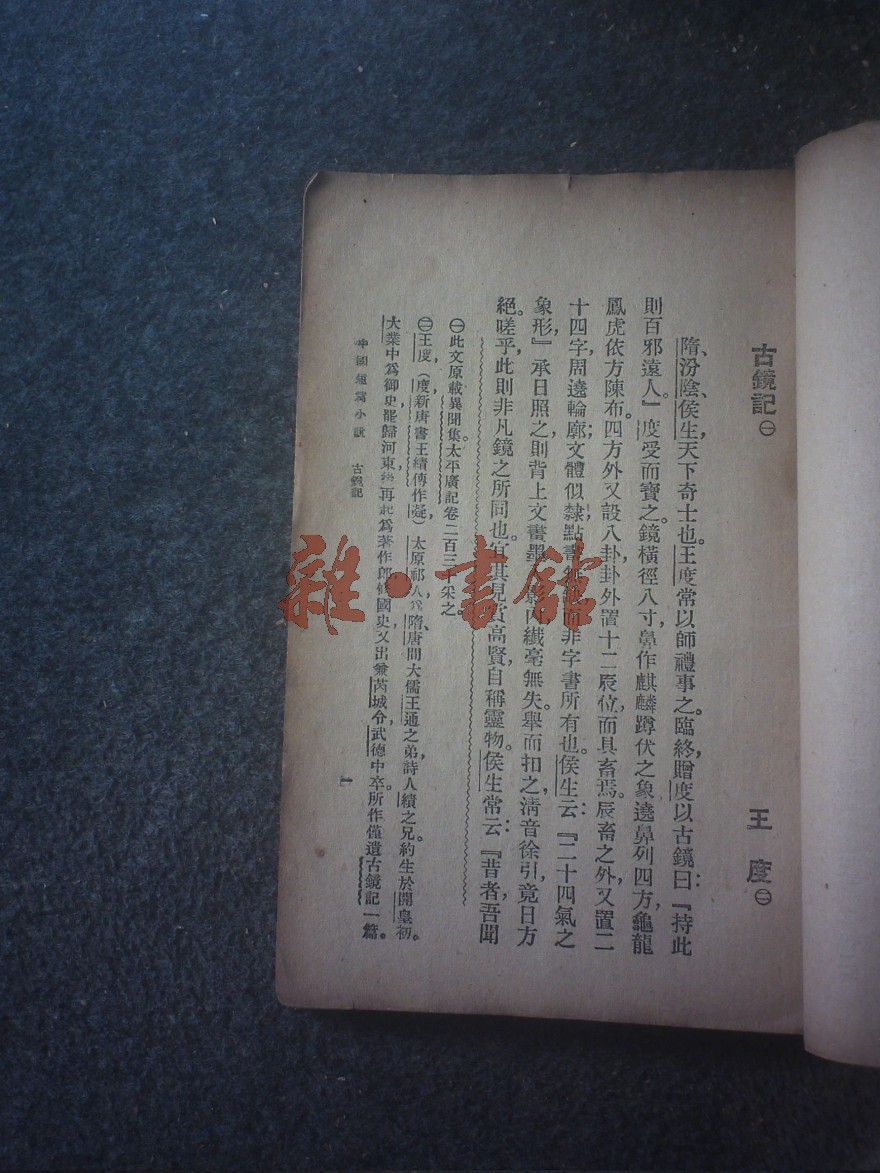 古鏡記㊀
王度㊁
隋、汾陰、侯生，天下奇士也。王度常以師禮事之。臨終，贈度以古鏡曰：『持此
則百邪遠人。』度受而寶之。鏡橫徑八寸，鼻作麒麟蹲伏之象，遶鼻列四方，龜龍
鳳虎，依方陳布。四方外又設八卦，卦外置十二辰位，而具畜焉。辰畜之外，又置二
十四字，周遶輪廓，文體似隸，點畫無缺，而非字書所有也。侯生云：『二十四氣之
象形。』承日照之，則背上文畫，墨入影內，纖毫無失。舉而扣之，清音徐引，竟日方
絕。嗟乎，此則非凡鏡之所同也。宜其見賞高賢，自稱靈物。侯生常云：『昔者，吾聞
㊀此文原載異聞集。太平廣記卷二百三十采之。
㊁王度，（度，新唐書王績傳作凝）太原祁人，為隋、唐間大儒王通之弟，詩人績之兄。約生於開皇初。
大業中為御史，罷歸河東，後再起為著作郎，修國史，又出兼芮城令，武德中卒。所作僅遺古鏡記一篇。
中國短篇小說 古鏡記
一
雜·書館